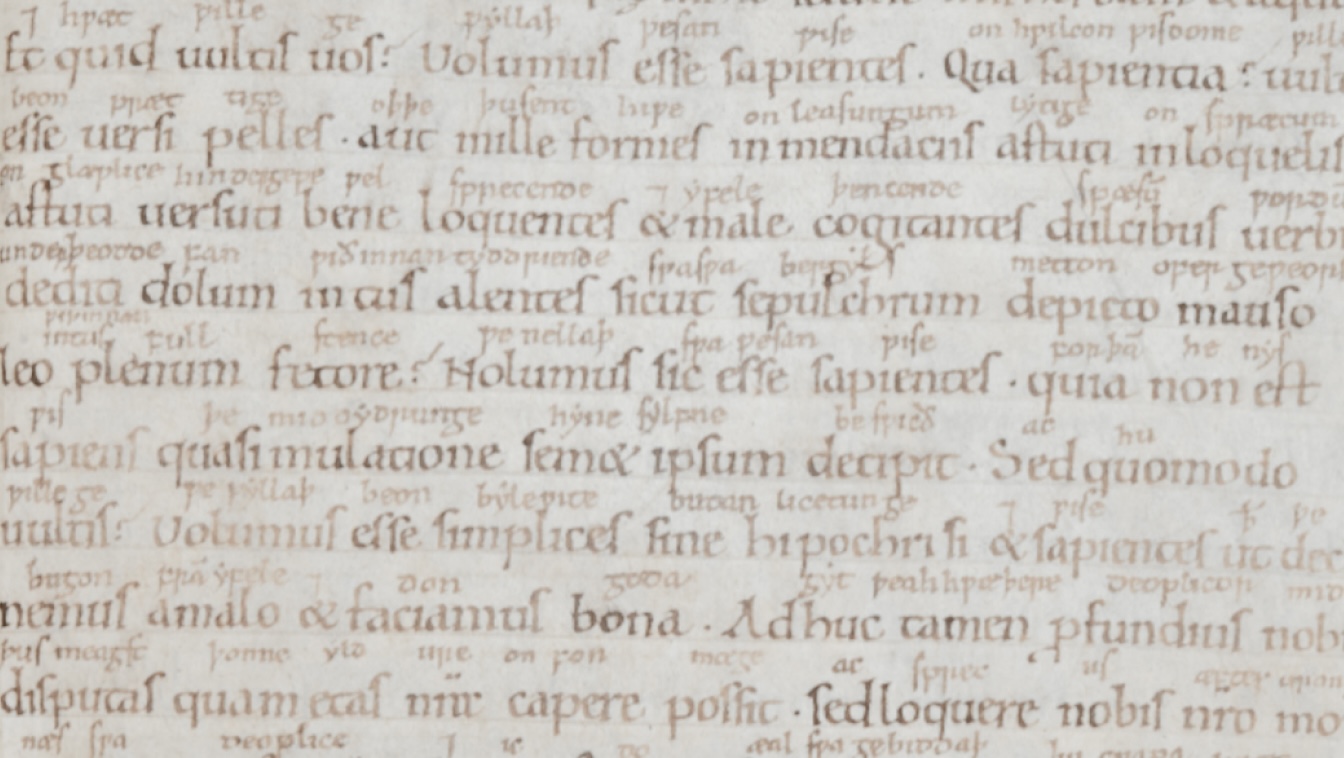 ⁊ hƿæt ƿille ge ƿyllaþ ƿesan ƿise on hƿilcon ƿisdome
Et quid uultis uos? Uolumus esse sapientes. Qua sapientia? uul
beon prættige oþþe þusent hiƿe on leasungum lytige on spræcum
esse uersi pelles. aut mille formes in mendaciis astuti in loquelis
on glæplice hindergepe ƿel sprecende ⁊ yfele þencende spæsū ƿord
astuti uersuti bene loquentes & male cogitantes dulcibus uerbi
underþeodde facn ƿiðinnan tyddriende sƿa sƿa bergyls metton ofer geƿeorc
dediti dolum intus alentes sicut sepulchrum depicto mauso
intus full stence ƿe nellaþ sƿa ƿesan ƿise forþā he nys
leo plenum fetore? Nolumus sic esse sapientes. quia non est
ƿis þe mid dydrunge hyne sylfne besƿicð ac hu
sapiens qua simulatione sem& ipsum decipit. Sed quomodo
ƿille ge ƿe ƿyllaþ beon bylepite butan licetunge ⁊ ƿise ꝥ ƿe
uultis? Uolumus esse simplices sine hipochrisi & sapientes ut dec
bugon frā yfele ⁊ don goda gyt þeahhƿæþere deoplicor mid
nemus a malo & faciamus bona. Adhuc tamen ꝓfundius nob
þus smeagst þonne yld ure on fon mæge ac sprec us æfter urum
disputas quam etas nr̄ capere possit. sed loquere nobis nr̄o mo
næs sƿa deoplice ⁊ ic do eal sƿa ge biddaþ